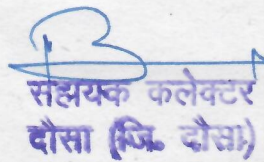 सहायक कलेक्टर
दौसा (जि. दौसा)